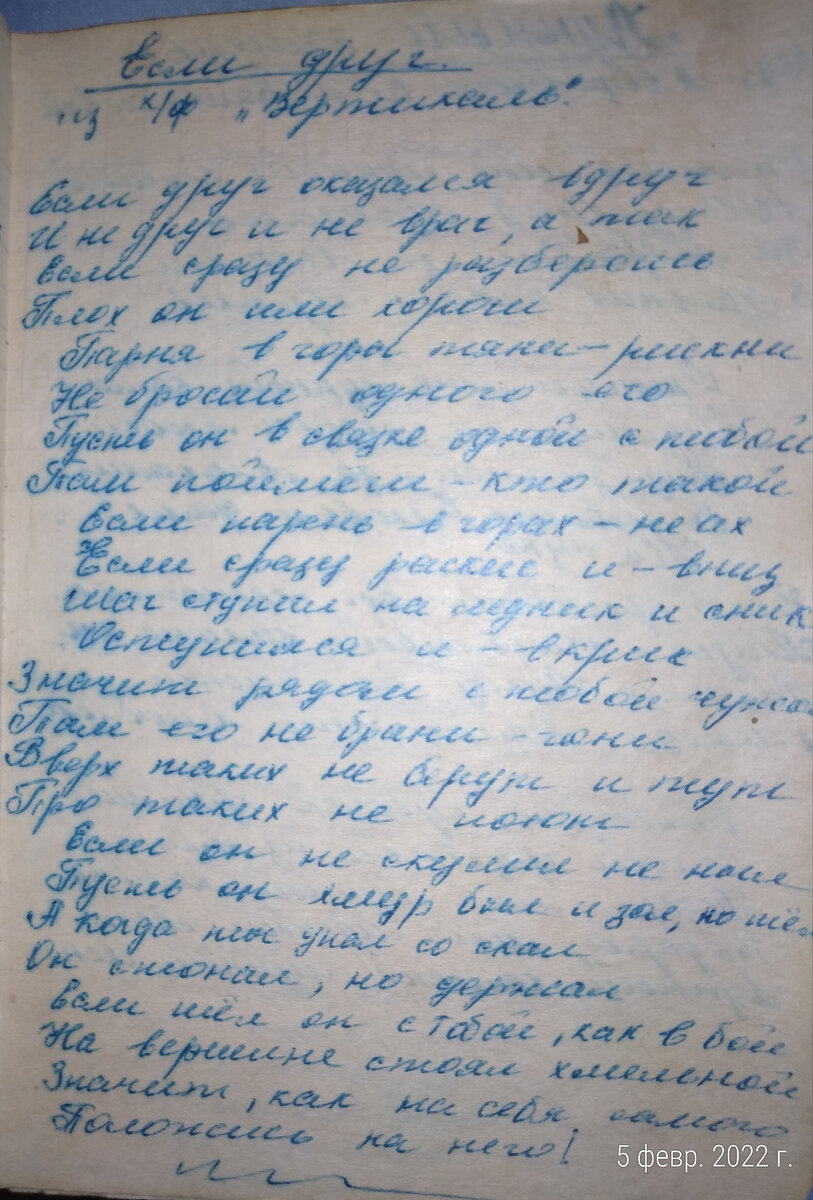 Если друг.
из к/ф „Вертикаль".
Если друг оказался вдруг
И не друг и не враг, а так
Если сразу не разберёшь
Плох он или хорош
Парня в горы тяни – рискни
Не бросай одного его
Пусть он в связке одной с тобой
Там поймёшь – кто такой
Если парень в горах – не ах
Если сразу раскис и – вниз
Шаг ступил на ледник и сник
Оступился и – в крик
Значит рядом с тобой чужой
Там его не брани – гони
Вверх таких не берут и тут
Про таких не поют
Если он не скулил не ныл
Пусть он хмур был и зол, но шёл
А когда ты упал со скал
Он стонал, но держал
Если шёл он с тобой, как в бой
На вершине стоял хмельной
Значит, как на себя самого
Положись на него!
5 февр. 2022 г.